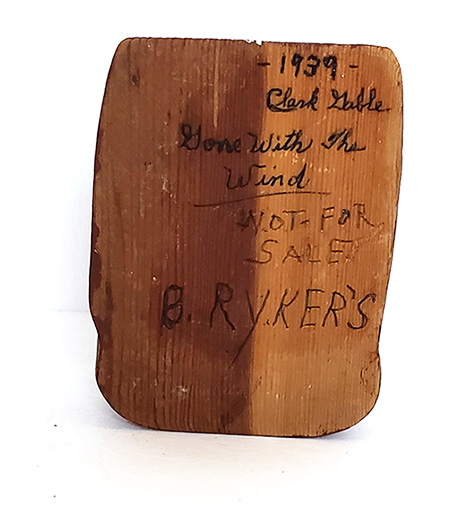 - 1939 -
Clark Gable
Gone With The
Wind
NOT FOR
SALE
B. RYKER'S